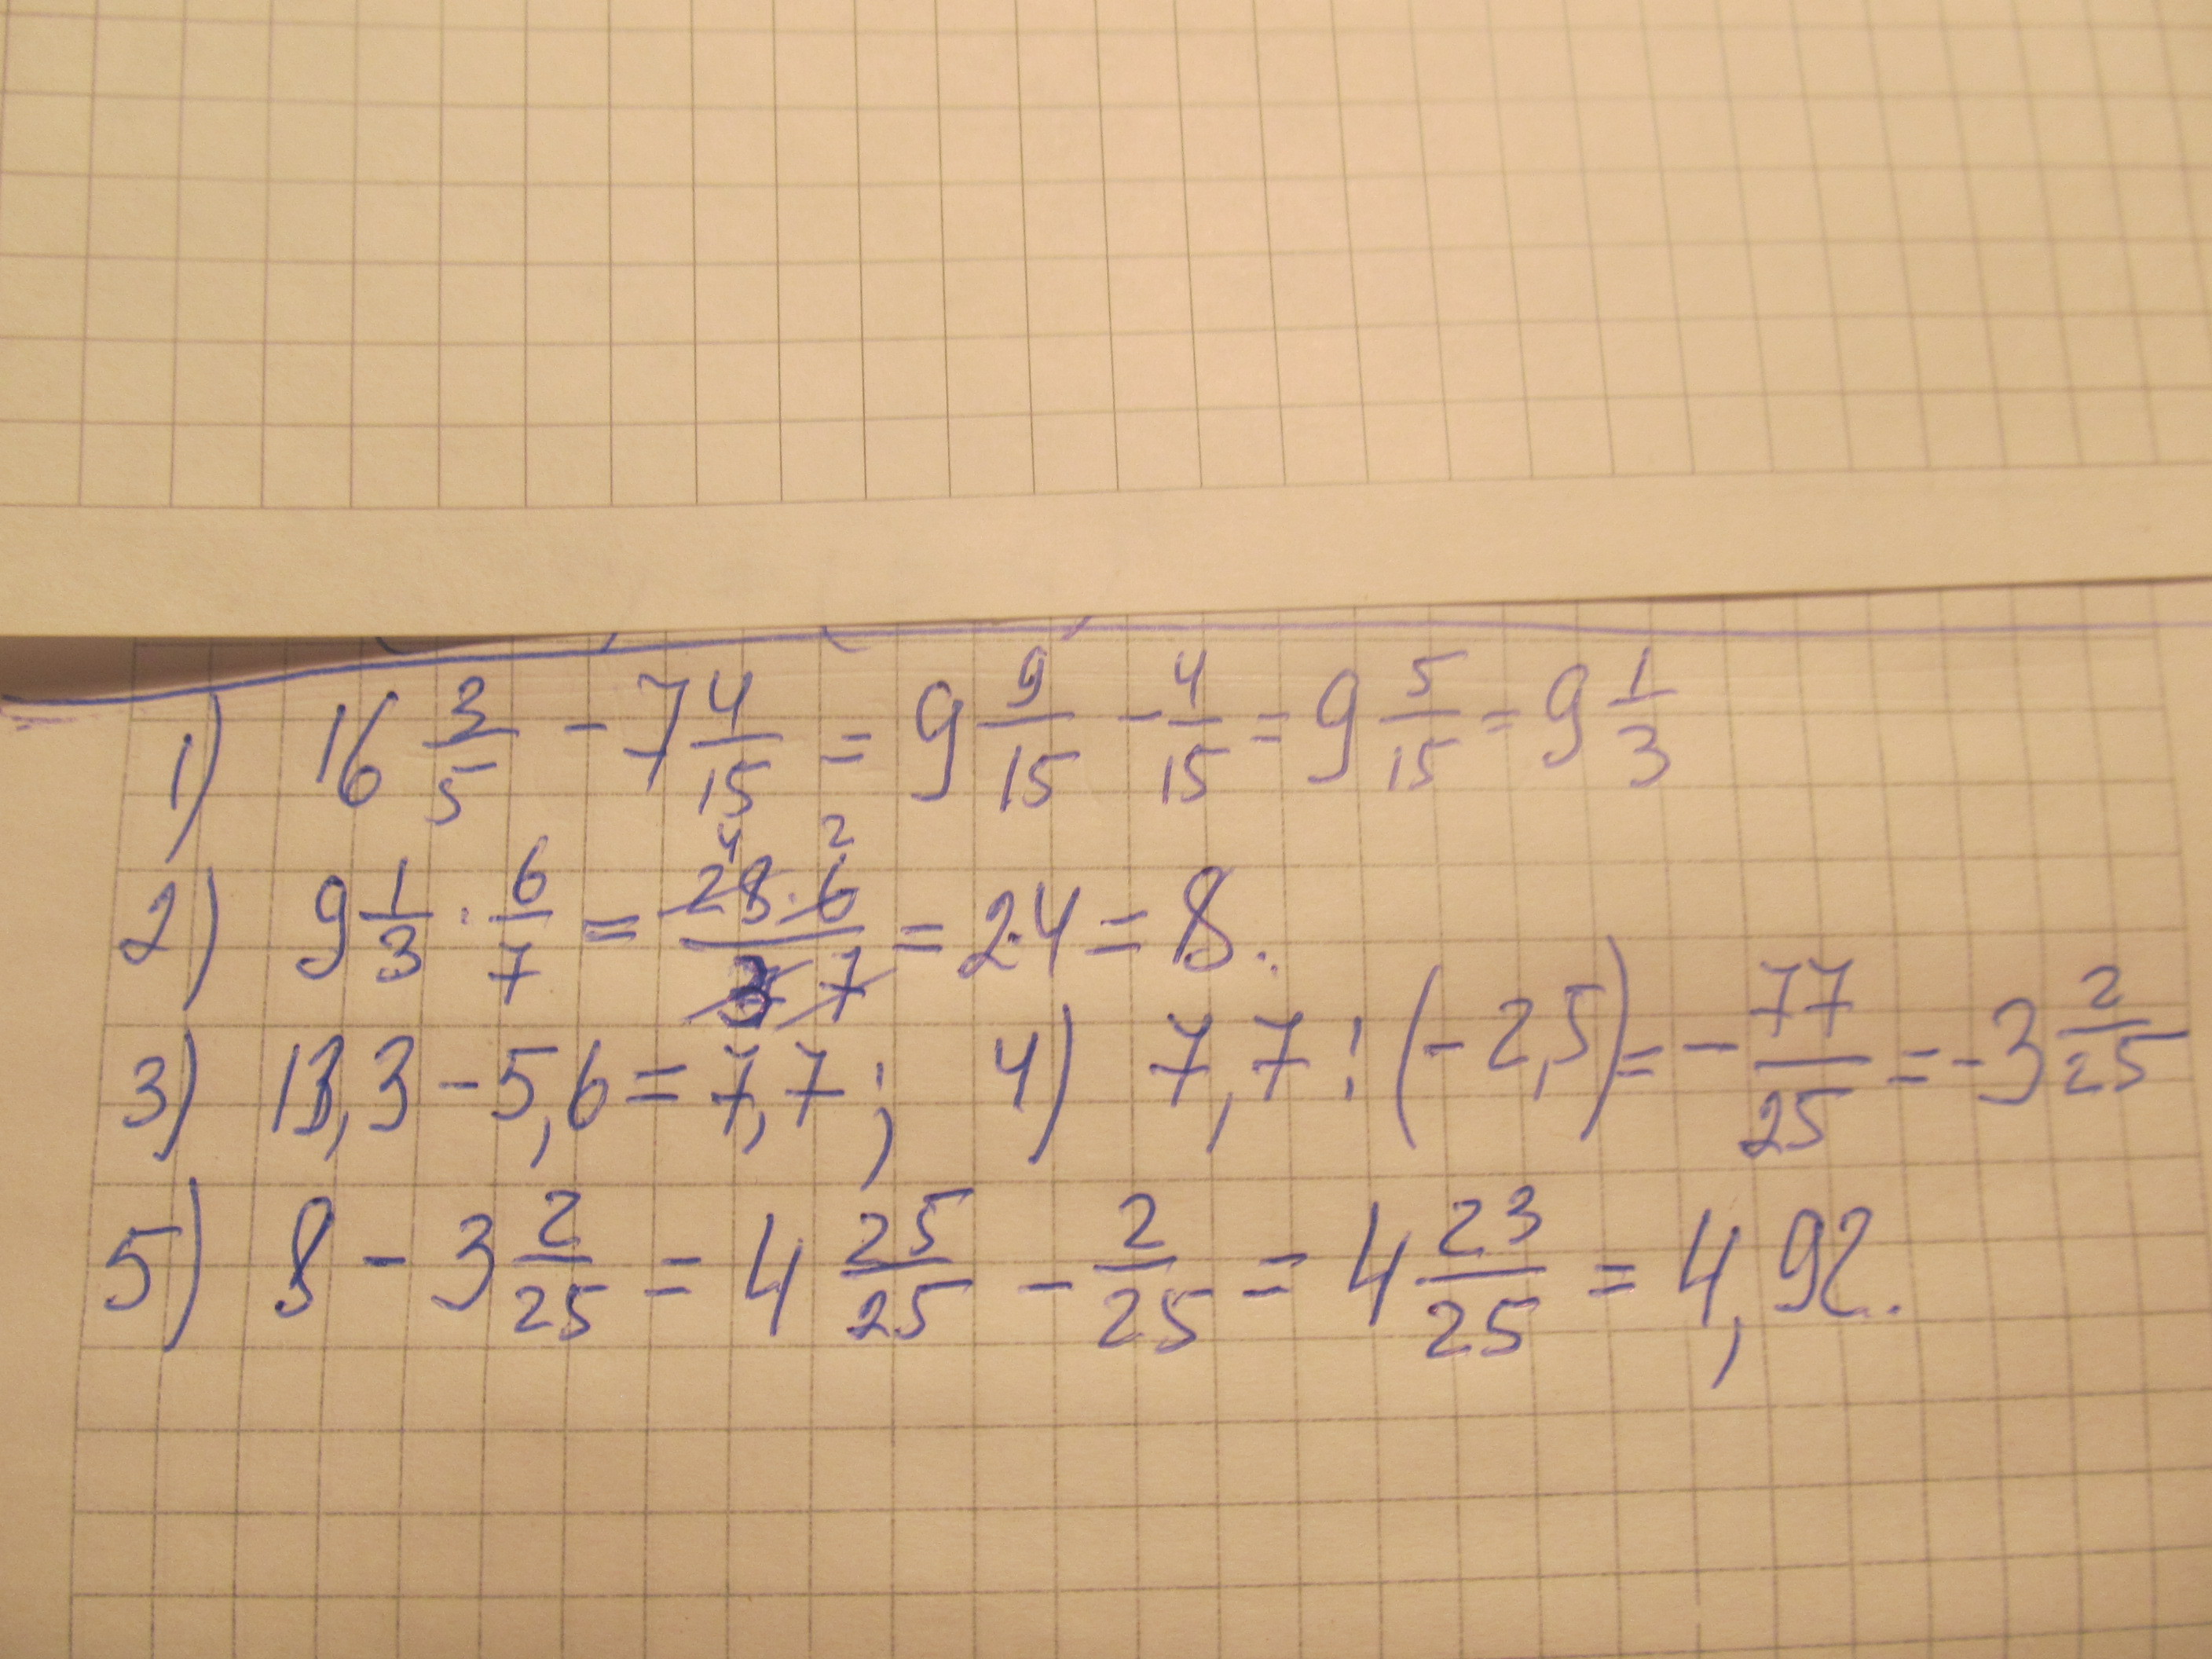 1) 16 3/5 - 7 4/15 = 9 9/15 - 4/15 = 9 5/15 = 9 1/3
2) 9 1/3 · 6/7 = 28·6/3 7 = 2·4 = 8.
3) 13,3 - 5,6 = 7,7; 4) 7,7 : (-2,5) = - 77/25 = -3 2/25
5) 8 - 3 2/25 = 4 25/25 - 2/25 = 4 23/25 = 4,92.